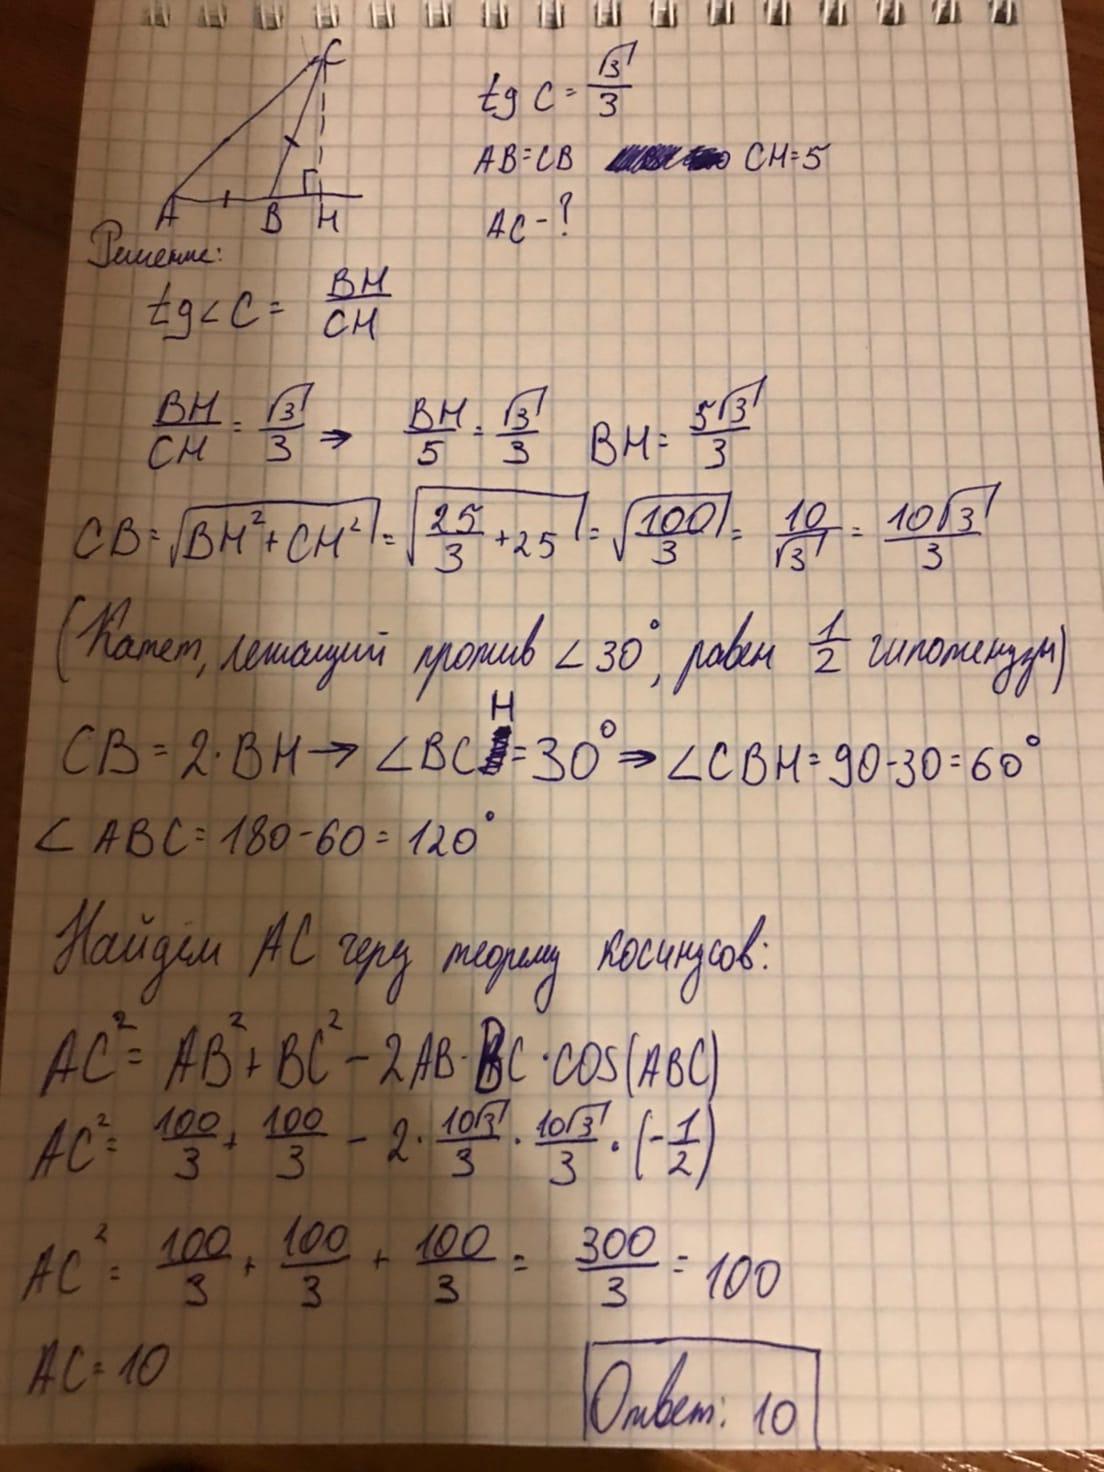 C
A
B
H
tg C = √3/3
AB=CB CH=5
AC - ?
Решение:
tg∠C = BH/CH
BH/CH = √3/3 ⇒ BH/5 = √3/3 BH = 5√3/3
CB = √(BH²+CH²) = √(25/3 + 25) = √(100/3) = 10/√3 = 10√3/3
(Катет, лежащий против ∠30°, равен 1/2 гипотенузы)
CB = 2·BH → ∠BCH = 30° ⇒ ∠CBH = 90-30 = 60°
∠ABC = 180-60 = 120°
Найдём AC через теорему косинусов:
AC² = AB² + BC² - 2AB·BC·cos(ABC)
AC² = 100/3 + 100/3 - 2·10√3/3·10√3/3·(-1/2)
AC² = 100/3 + 100/3 + 100/3 = 300/3 = 100
AC = 10
Ответ: 10